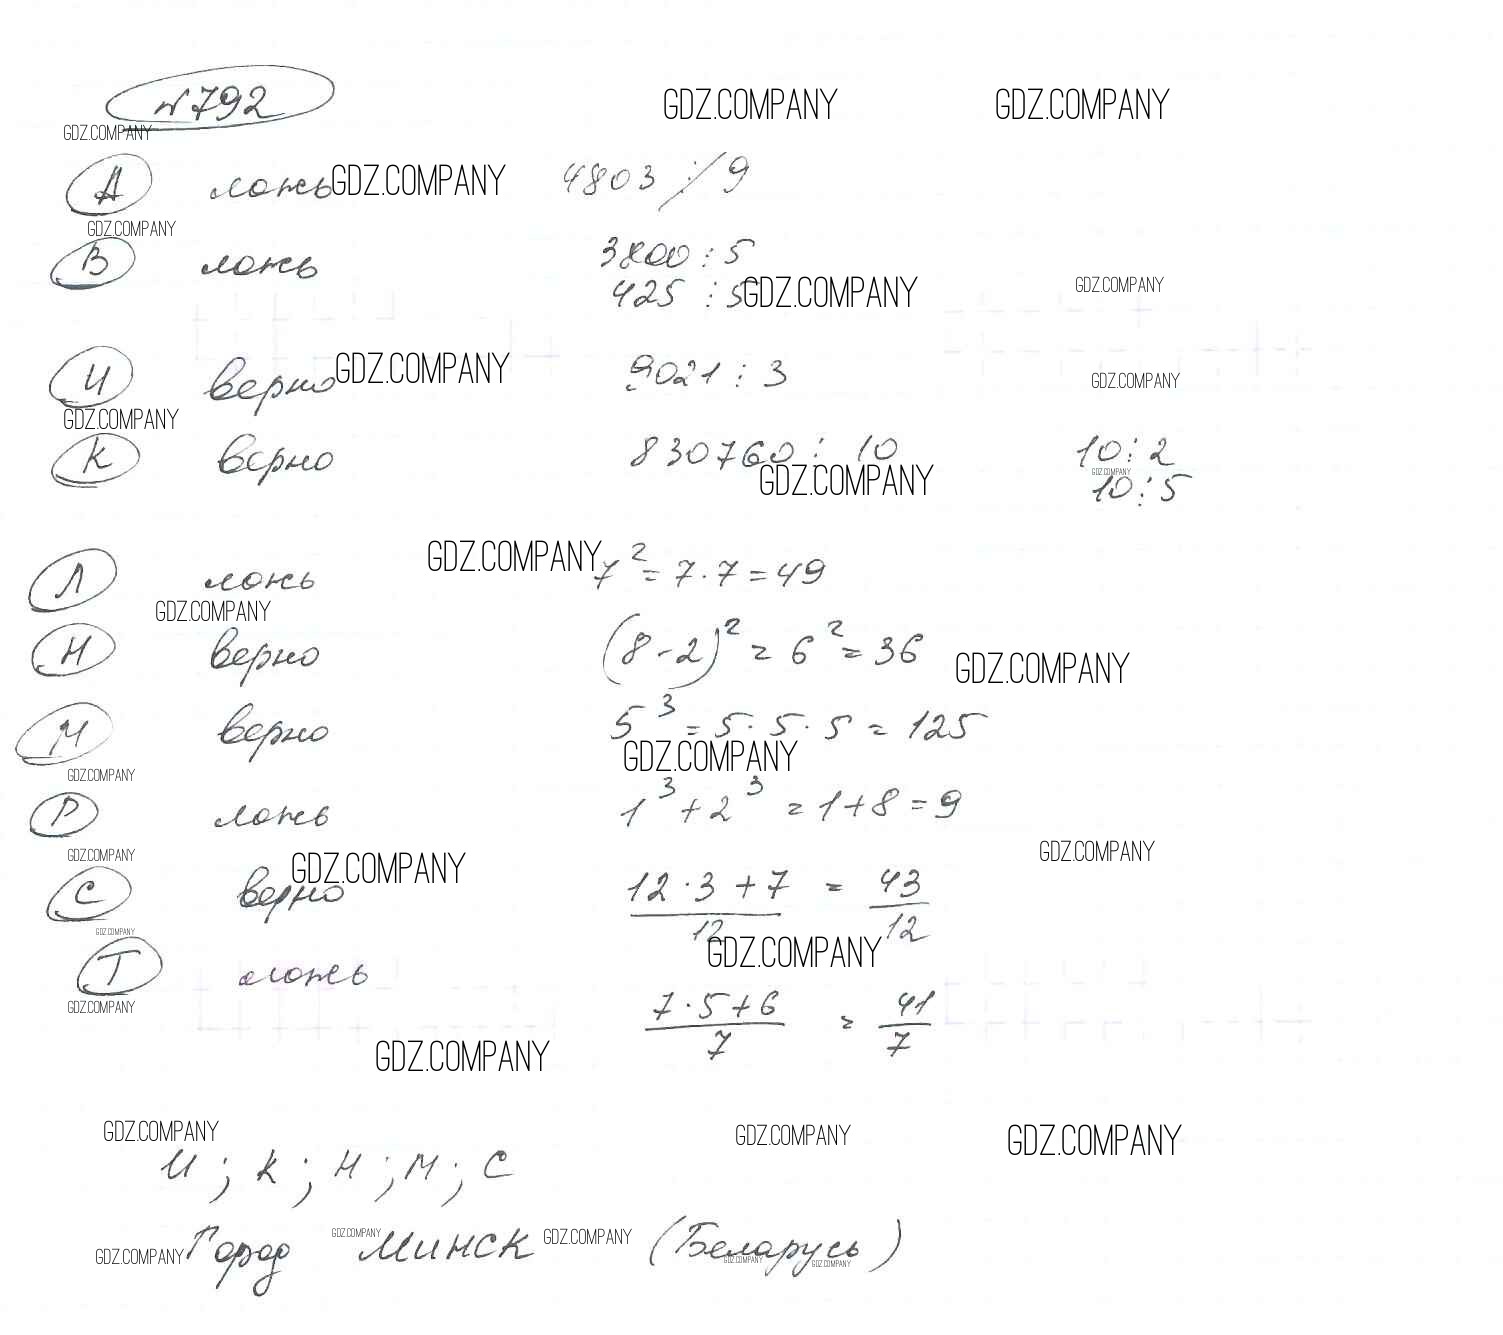 №792
GDZ.COMPANY GDZ.COMPANY
GDZ.COMPANY
А ложь GDZ.COMPANY 4803 ⋮̸ 9
GDZ.COMPANY
В ложь 3800 ⋮ 5
425 ⋮ 5 GDZ.COMPANY GDZ.COMPANY
И верно GDZ.COMPANY 9021 ⋮ 3 GDZ.COMPANY
GDZ.COMPANY
К верно 830760 ⋮ 10 10 ⋮ 2
GDZ.COMPANY GDZ.COMPANY 10 ⋮ 5
Л ложь GDZ.COMPANY 7² = 7·7 = 49
GDZ.COMPANY
Н верно (8-2)² = 6² = 36 GDZ.COMPANY
М верно 5³ = 5·5·5 = 125
GDZ.COMPANY GDZ.COMPANY
Р ложь 1³ + 2³ = 1+8 = 9
GDZ.COMPANY GDZ.COMPANY
С верно GDZ.COMPANY 12·3+7 = 43
12 12
GDZ.COMPANY GDZ.COMPANY
Т ложь
GDZ.COMPANY 7·5+6 = 41
7 7
GDZ.COMPANY
GDZ.COMPANY GDZ.COMPANY GDZ.COMPANY
И ; К ; Н ; М ; С
GDZ.COMPANY Город GDZ.COMPANY МИНСК GDZ.COMPANY (Беларусь)
GDZ.COMPANY GDZ.COMPANY